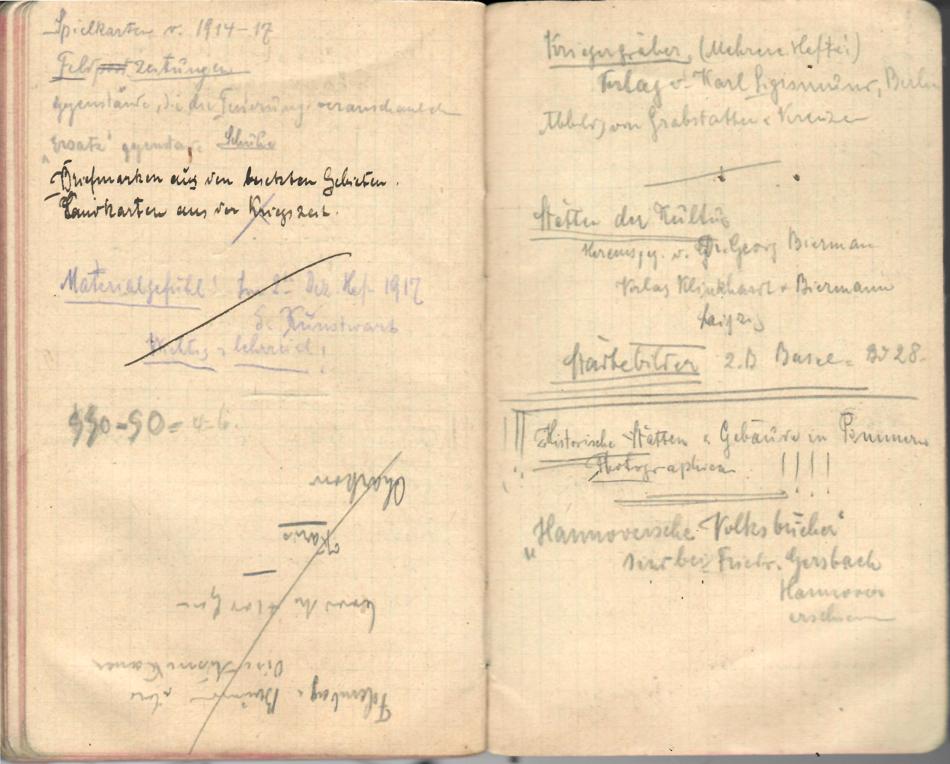 Spielkarten v. 1914-17
Feldpost Zeitungen
gegenstände, die die Teuerung veranschaulich
"Ersatz" gegenstände Schuhe
Briefmarken aus den besetzten Gebieten.
Landkarten aus der Kriegszeit.
Materialgefühl! Im 2ten Dez. Hef. 1917
d. Kunstwart
Wichtig u lehrreich!
550-50=
Charkow
Kriegergräber (Mehrere Hefte!)
Verlag v. Karl Sigismund, Berlin
Abbild. von Grabstätten u Kreuzen
Stätten der Kultur
Herausg. v. Dr. Georg Bierman
Verlag Klinkhardt + Biermann
Leipzig
Städtebilder z.B Basel = Bd 28.
Historische Stätten u Gebäude in Pommern
Photographien !!!!
"Hannoversche Volksbücher"
sind bei Friedr. Gersbach
Hannover
erschienen